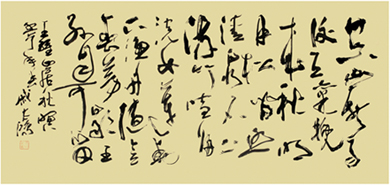 空山新雨
後天氣晚
來秋明
月松間照
清泉石上
流竹喧歸
浣女蓮動
下漁舟隨意
春芳歇王
孫自可留
王維山居秋暝